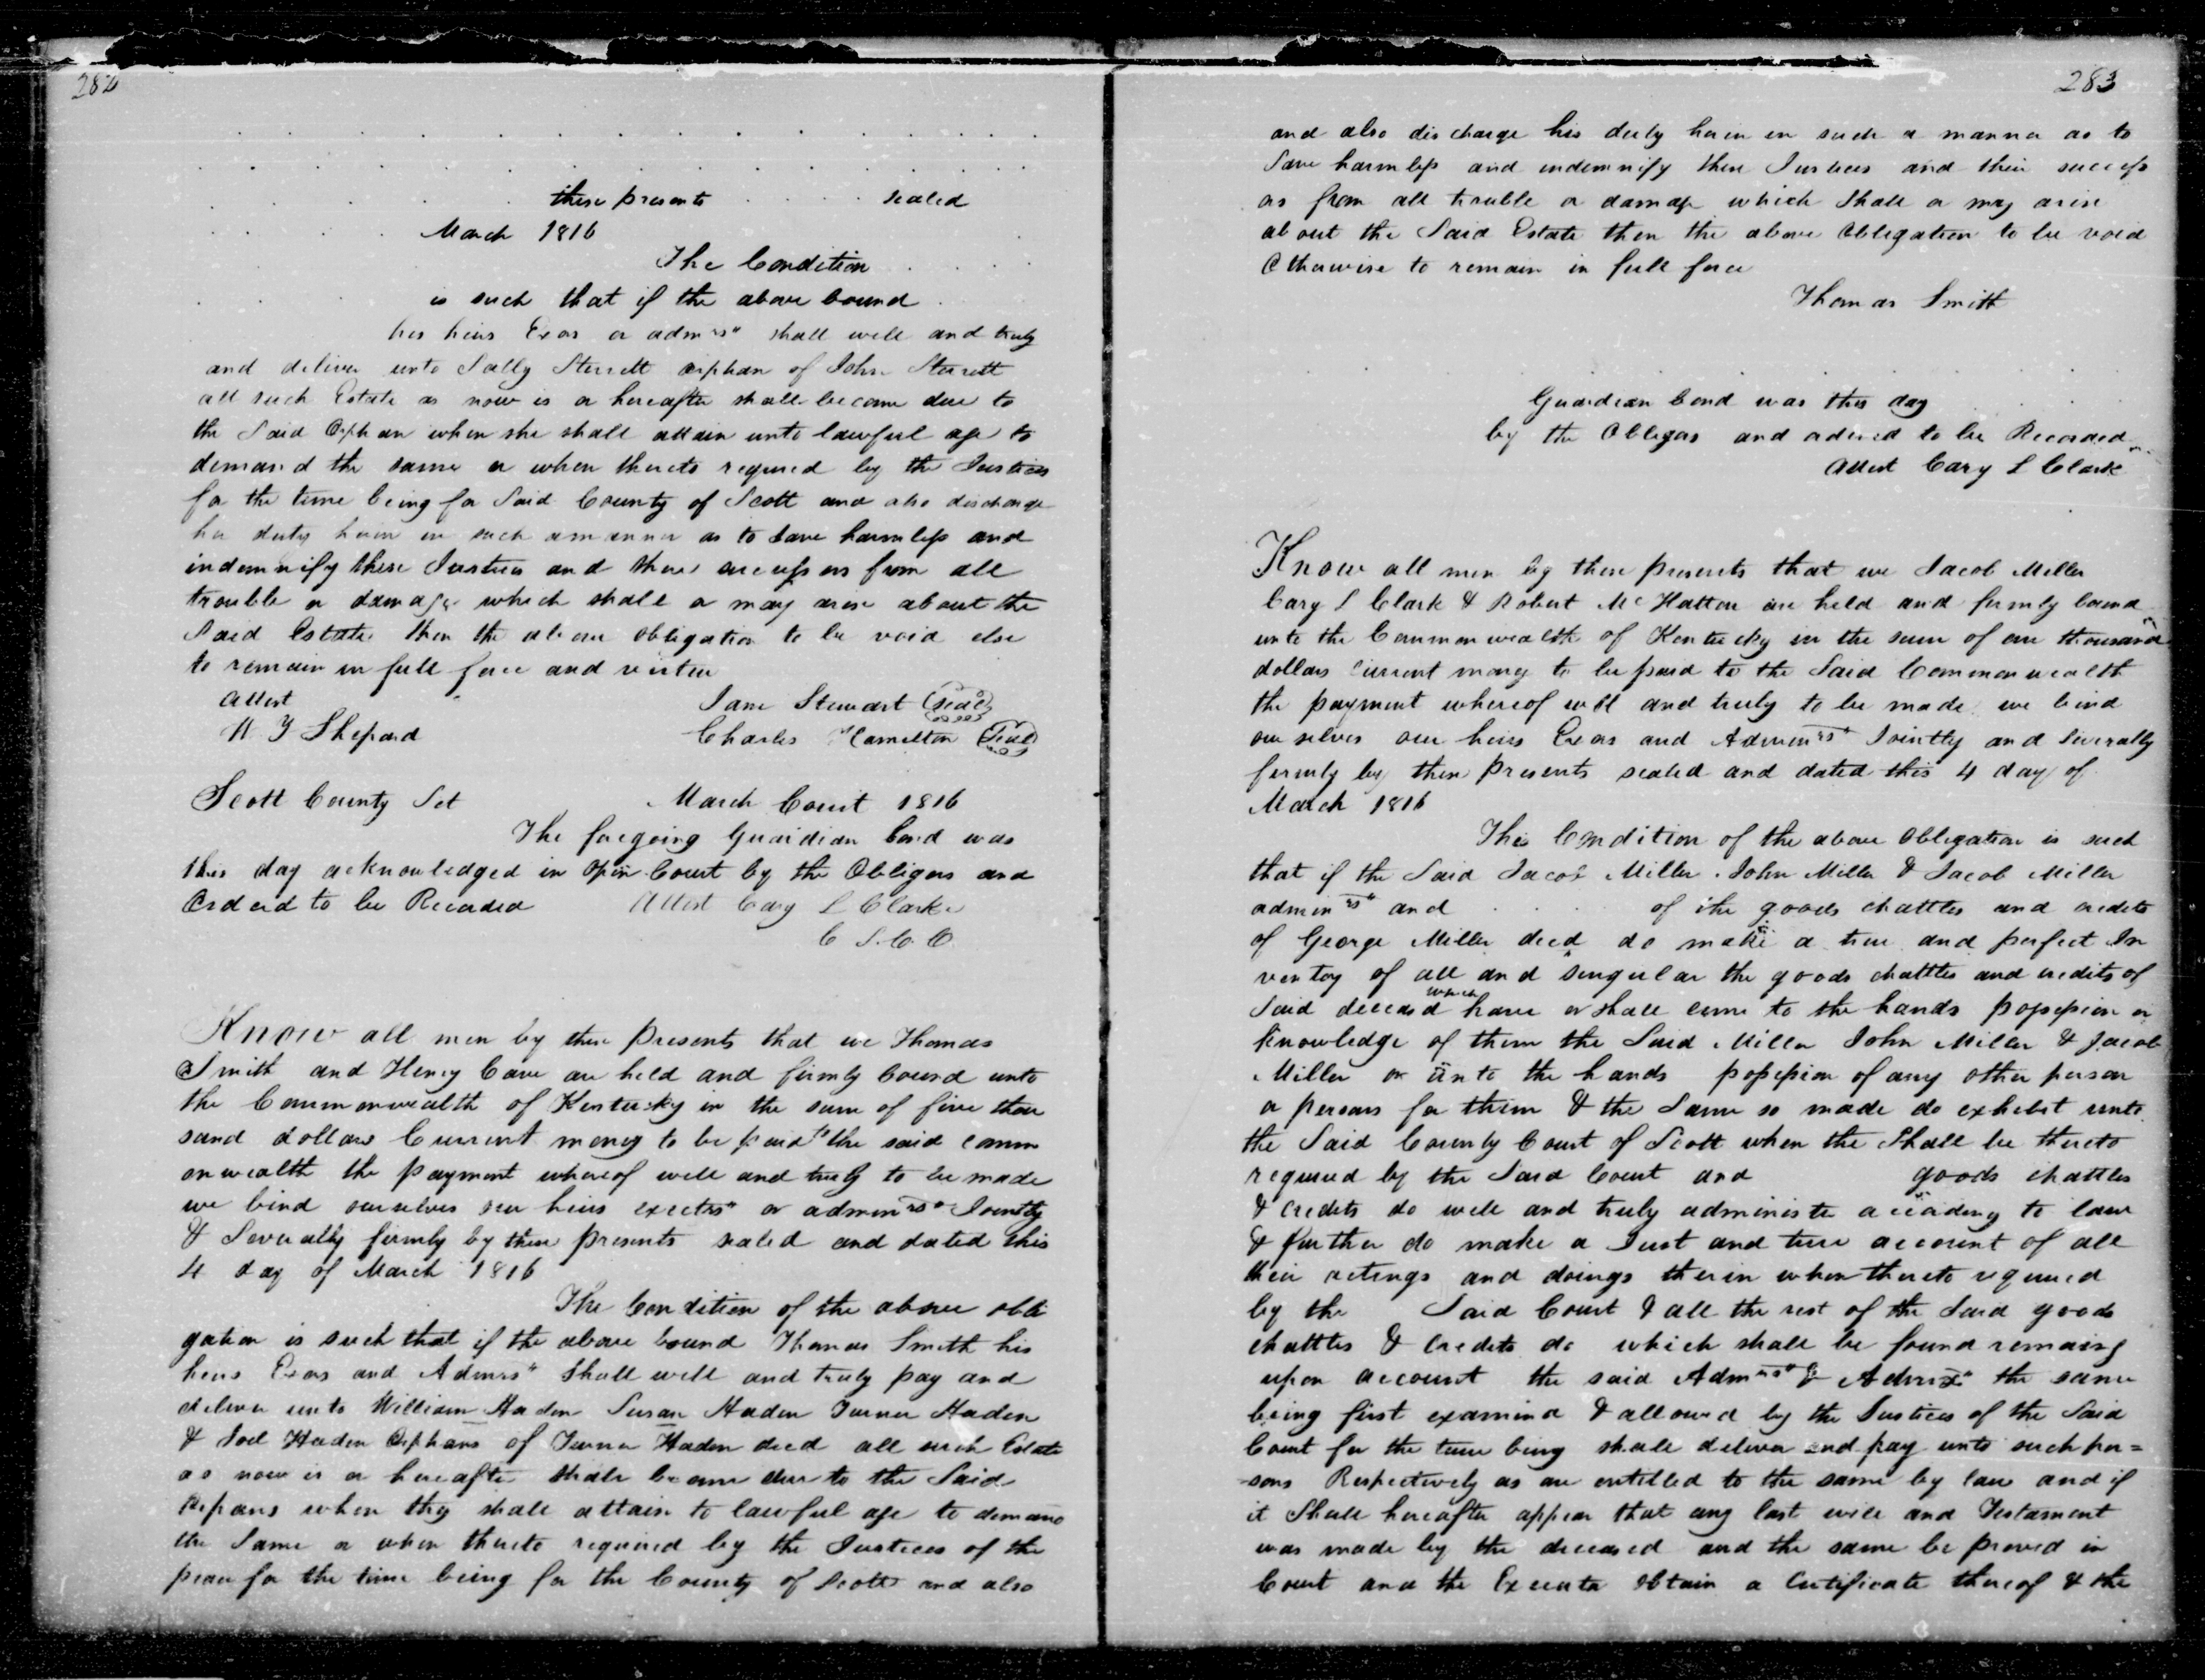 282
these presents . . . . sealed
March 1816
The Condition
is such that if the above bound
his heirs Exors or admrs" shall well and truly
and deliver unto Sally Sterrett orphan of John Sterrett
all such Estate as now is or hereafter shall become due to
the Said Orphan when she shall attain unto lawful age to
demand the same or when thereto required by the Justices
for the time being for Said County of Scott and also discharge
her duty herein in such a manner as to save harmless and
indemnify these Justices and their successors from all
trouble or damage which shall or may arise about the
Said Estate then the above obligation to be void else
to remain in full force and virtue
Attest Jane Stewart (Seal)
W Y Shepard Charles Hamilton (Seal)
Scott County Sct March Court 1816
The foregoing Guardian bond was
this day acknowledged in Open Court by the Obligors and
Ordered to be Recorded Attest Cary L Clarke
C S. C. C.
Know all men by these presents that we Thomas
Smith and Henry Cave are held and firmly bound unto
the Commonwealth of Kentucky in the sum of five thou
sand dollars Current money to be paid to the said comm
onwealth the payment whereof well and truly to be made
we bind ourselves our heirs exectrs" or adminrs" Jointly
& Severally firmly by these presents sealed and dated this
4 day of March 1816
The Condition of the above obli
gation is such that if the above bound Thomas Smith his
heirs Exors and Admrs" Shall well and truly pay and
deliver unto William Haden Susan Haden Turner Haden
& Joel Haden Orphans of Turner Haden decd all such Estate
as now is or hereafter shall become due to the Said
Orphans when they shall attain to lawful age to demand
the Same or when thereto required by the Justices of the
peace for the time being for the County of Scott and also
283
and also discharge his duty herein in such a manner as to
Save harmless and indemnify these Justices and their success
ors from all trouble or damage which Shall or may arise
about the Said Estate then the above Obligation to be void
Otherwise to remain in full force
Thomas Smith
Guardian bond was this day
by the Obligors and ordered to be Recorded
Attest Cary L Clark
Know all men by these presents that we Jacob Miller
Cary L Clark & Robert McHatton are held and firmly bound
unto the Commonwealth of Kentucky in the sum of one thousand
dollars current money to be paid to the Said Commonwealth
the payment whereof well and truly to be made we bind
our selves our heirs Exors and Adminrs" Jointly and Severally
firmly by these Presents sealed and dated this 4 day of
March 1816
The Condition of the above Obligation is such
that if the Said Jacob Miller John Miller & Jacob Miller
adminrs" and . . . of the goods chattles and credits
of George Miller decd do make a true and perfect In
ventoy of all and singular the goods chattles and credits of
Said deceasd which have or shall come to the hands possession or
knowledge of them the Said Miller John Miller & Jacob
Miller or unto the hands possession of any other person
or persons for them & the Same so made do exhibit unto
the Said County Court of Scott when the Shall be thereto
required by the Said Court and goods chattles
& credits do well and truly administer according to law
& further do make a Just and true account of all
their actings and doings therein when thereto required
by the Said Court & all the rest of the Said goods
chattles & Credits do which shall be found remaing
upon account the said Admrs" & Admrx" the same
being first examind & allowed by the Justices of the Said
Court for the time being shall deliver and pay unto such per=
-sons Respectively as are entitled to the same by law and if
it Shall hereafter appear that any last will and Testament
was made by the deceased and the same be proved in
Court and the Executor Obtain a Certificate thereof & the